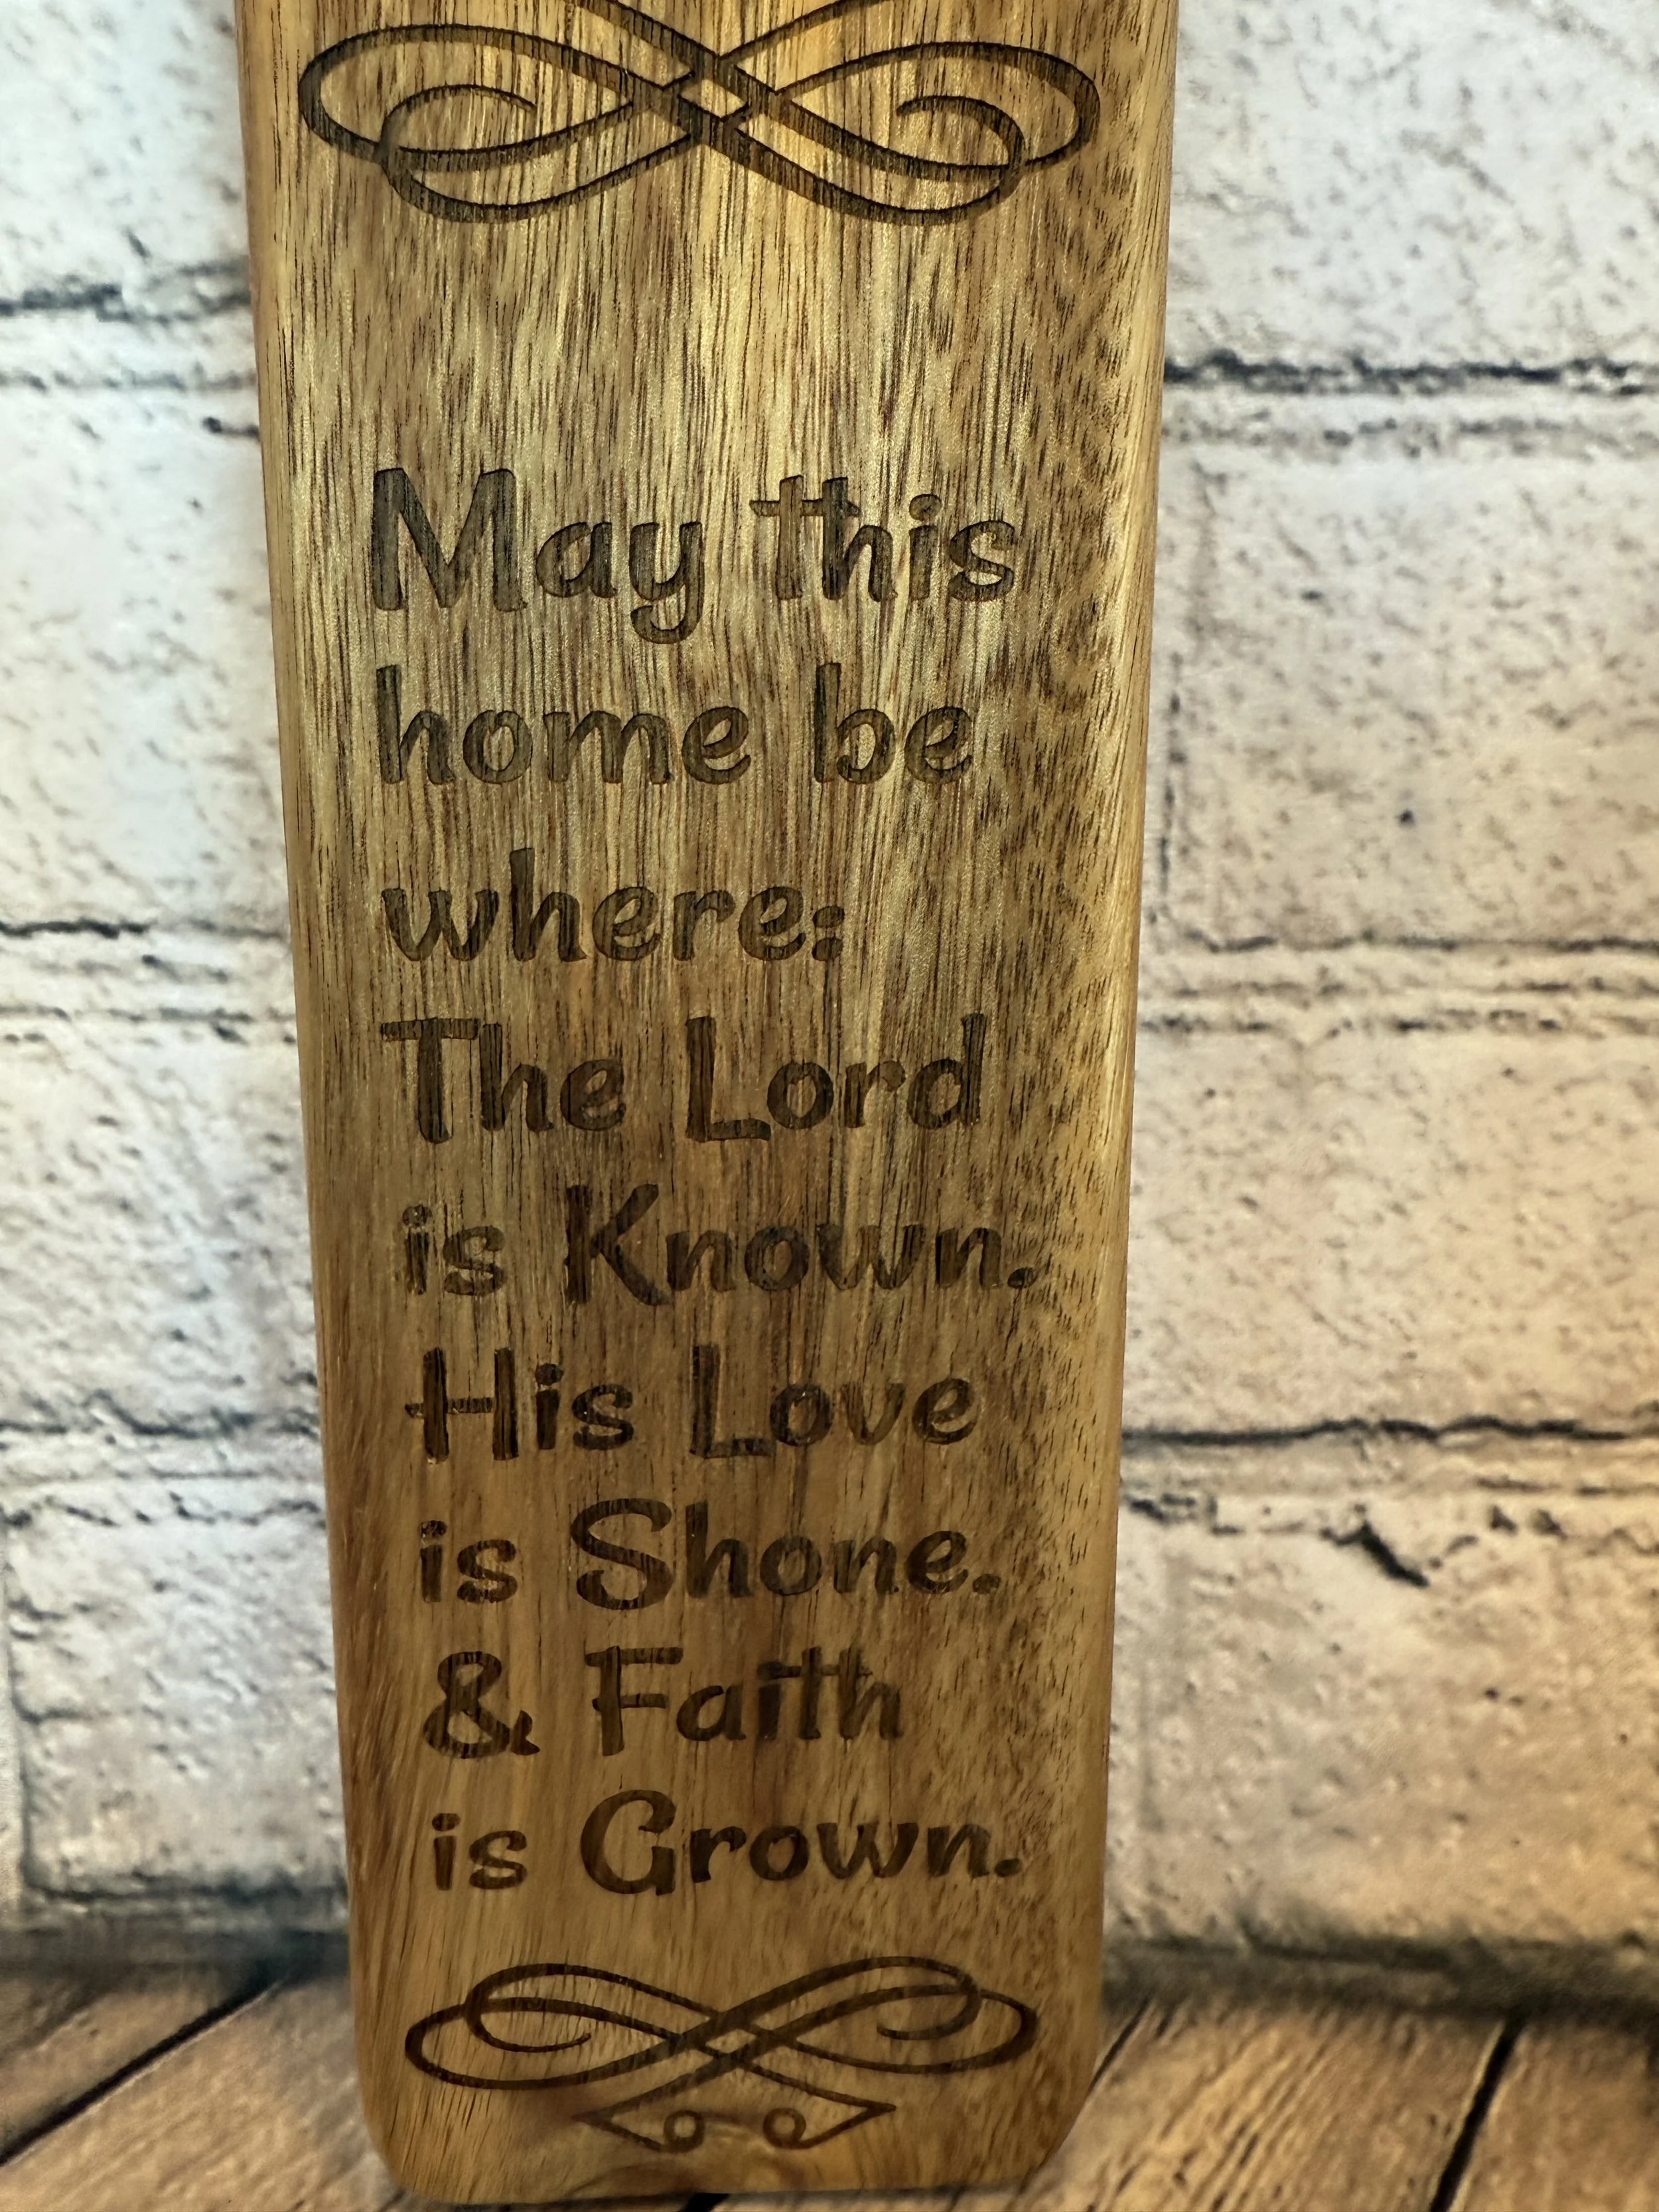 May this
home be
where:
The Lord
is Known.
His Love
is Shone.
& Faith
is Grown.